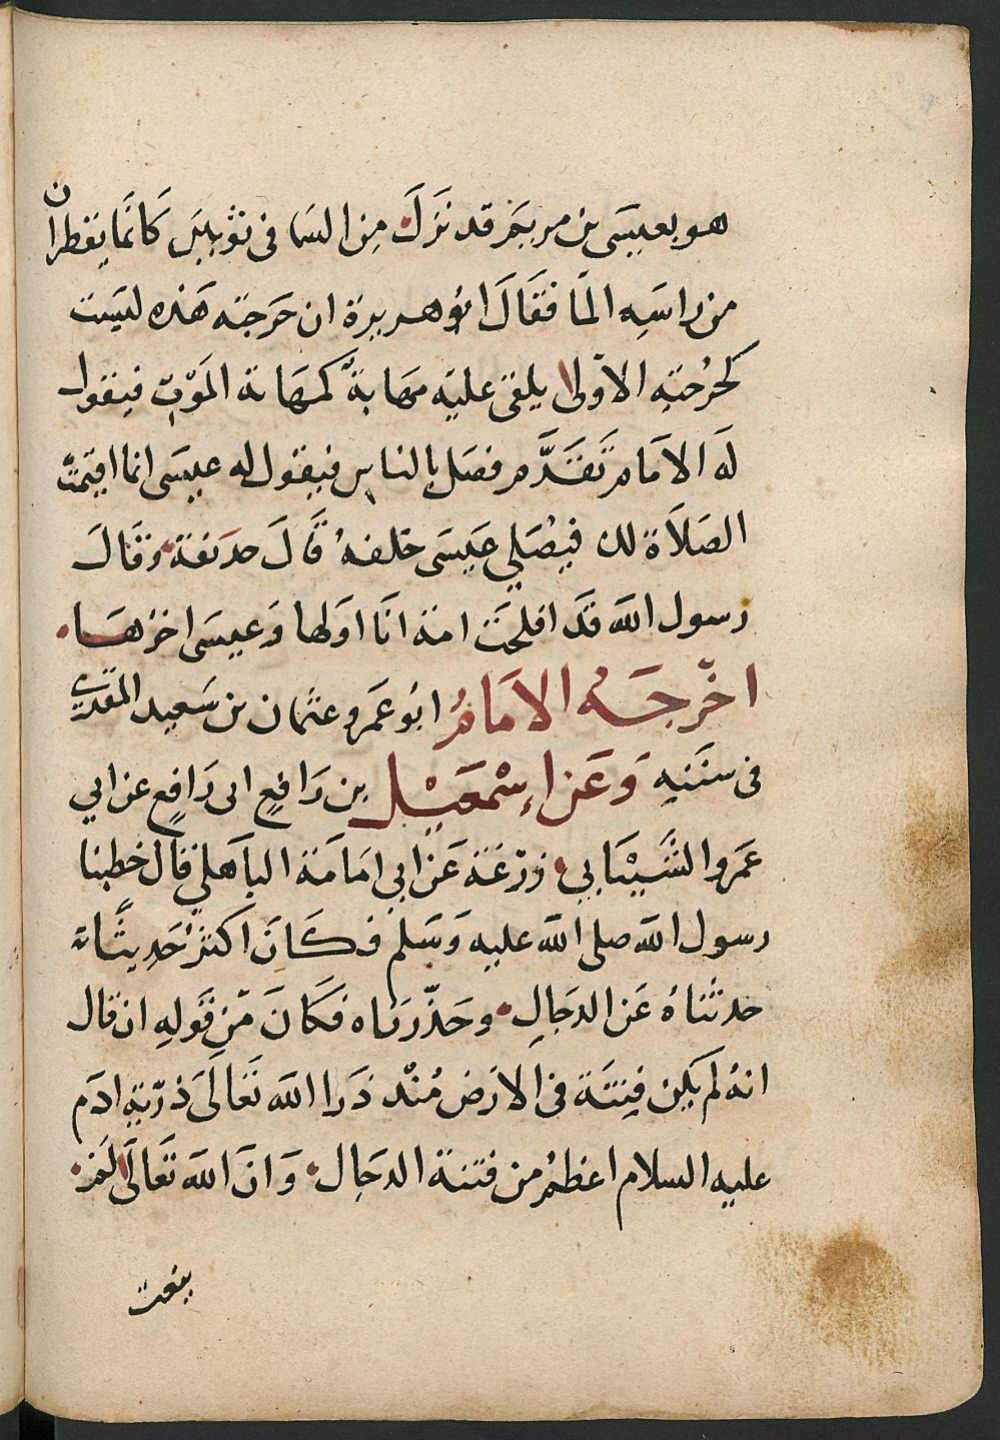 هو بعيسى بن مريم قد نزل من السما في ثوبين كانما يقطران
من راسه الما فقال ابو هريرة ان خرجته هذه ليست
كخرجته الاولى يلقى عليه مهابة كمهابة الموت فيقول
له الامام تقدم فصل بالناس فيقول له عيسى انما اقيمت
الصلاة لك فيصلي عيسى خلفه قال حذيفة وقال
رسول الله قد افلحت امة انا اولها وعيسى اخرها
اخرجه الامام ابو عمرو عثمان بن سعيد المقري
في سننه وعن اسمعيل بن رافع ابى رافع عن ابي
عمرو الشيباني وزرعة عن ابي امامة الباهلي قال خطبنا
رسول الله صلى الله عليه وسلم فكان اكثر حديثا
حدثناه عن الدجال وحذرناه فكان من قوله ان قال
انه لم يكن فتنة في الارض منذ ذرا الله تعالى ذرية ادم
عليه السلام اعظم من فتنة الدجال وان الله تعالى لم
يبعث